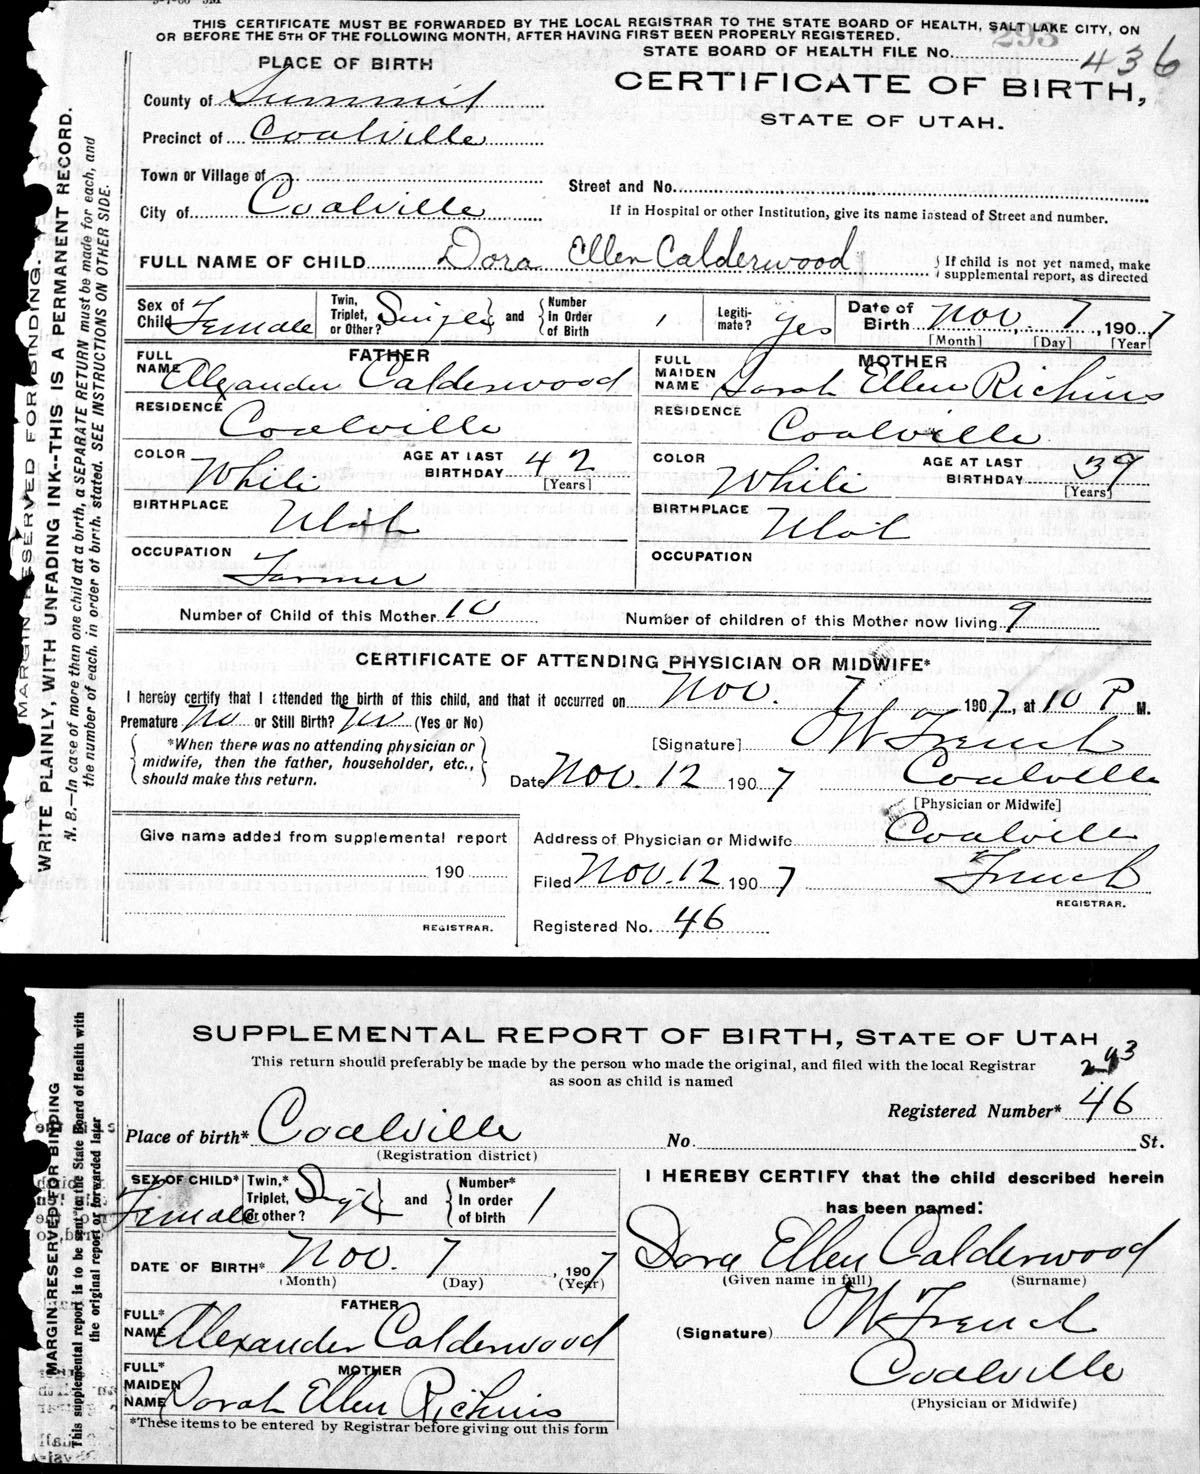 THIS CERTIFICATE MUST BE FORWARDED BY THE LOCAL REGISTRAR TO THE STATE BOARD OF HEALTH, SALT LAKE CITY, ON
OR BEFORE THE 5TH OF THE FOLLOWING MONTH, AFTER HAVING FIRST BEEN PROPERLY REGISTERED.
293
STATE BOARD OF HEALTH FILE No. 436
PLACE OF BIRTH
CERTIFICATE OF BIRTH,
STATE OF UTAH.
County of Summit
Precinct of Coalville
Town or Village of
Street and No.
City of Coalville
If in Hospital or other Institution, give its name instead of Street and number.
FULL NAME OF CHILD Dora Ellen Calderwood
If child is not yet named, make
supplemental report, as directed
Sex of Child Female
Twin, Triplet, or Other? Single and Number In Order of Birth 1
Legitimate? Yes
Date of Birth Nov. 7, 1907
[Month] [Day] [Year]
FATHER
FULL NAME Alexander Calderwood
RESIDENCE Coalville
COLOR White
AGE AT LAST BIRTHDAY 42
[Years]
BIRTHPLACE Utah
OCCUPATION Farmer
MOTHER
FULL MAIDEN NAME Sarah Ellen Richins
RESIDENCE Coalville
COLOR White
AGE AT LAST BIRTHDAY 39
[Years]
BIRTHPLACE Utah
OCCUPATION
Number of Child of this Mother 10
Number of children of this Mother now living 9
CERTIFICATE OF ATTENDING PHYSICIAN OR MIDWIFE*
I hereby certify that I attended the birth of this child, and that it occurred on Nov. 7 1907, at 10 P M.
Premature No or Still Birth? No (Yes or No)
*When there was no attending physician or
midwife, then the father, householder, etc.,
should make this return.
[Signature] W French
Date Nov. 12 1907
Coalville
[Physician or Midwife]
Give name added from supplemental report
190
REGISTRAR.
Address of Physician or Midwife Coalville
Filed Nov. 12 1907 French
REGISTRAR.
Registered No. 46
MARGIN RESERVED FOR BINDING.
WRITE PLAINLY, WITH UNFADING INK--THIS IS A PERMANENT RECORD.
N. B.—In case of more than one child at a birth, a SEPARATE RETURN must be made for each, and
the number of each, in order of birth, stated. SEE INSTRUCTIONS ON OTHER SIDE.
SUPPLEMENTAL REPORT OF BIRTH, STATE OF UTAH
This return should preferably be made by the person who made the original, and filed with the local Registrar
as soon as child is named
293
Registered Number* 46
Place of birth* Coalville
(Registration district)
No. St.
SEX OF CHILD* Female
Twin,* Triplet, or other? Sigl and Number* In order of birth 1
DATE OF BIRTH* Nov. 7, 1907
(Month) (Day) (Year)
FATHER
FULL* NAME Alexander Calderwood
MOTHER
FULL* MAIDEN NAME Sarah Ellen Richins
*These items to be entered by Registrar before giving out this form
I HEREBY CERTIFY that the child described herein
has been named:
Dora Ellen Calderwood
(Given name in full) (Surname)
(Signature) W French
Coalville
(Physician or Midwife)
MARGIN RESERVED FOR BINDING
This supplemental report is to be sent to the State Board of Health with
the original report or forwarded later